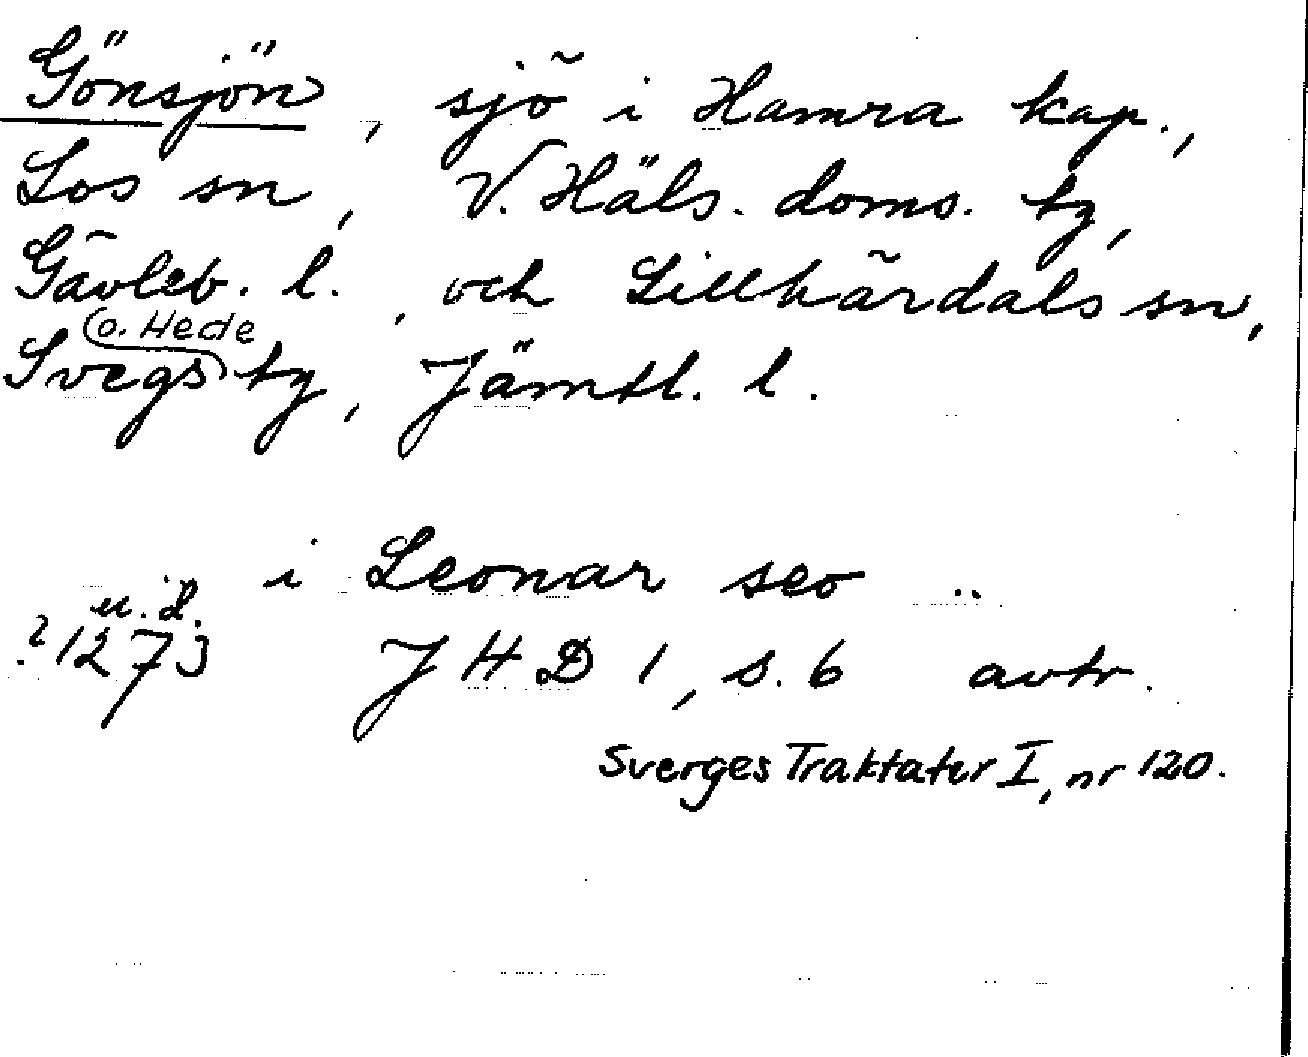 Gönsjön, sjö i Hamra kap.,
Los sn, V. Häls. doms. tg,
Gävleb. l., och Lillhärdals sn,
o. Hede
Svegs tg, Jämtl. l.
i Leonar seo
u. d.
? 1273 J H D 1, s. 6 avtr.
Sverges Traktater I, nr 120.